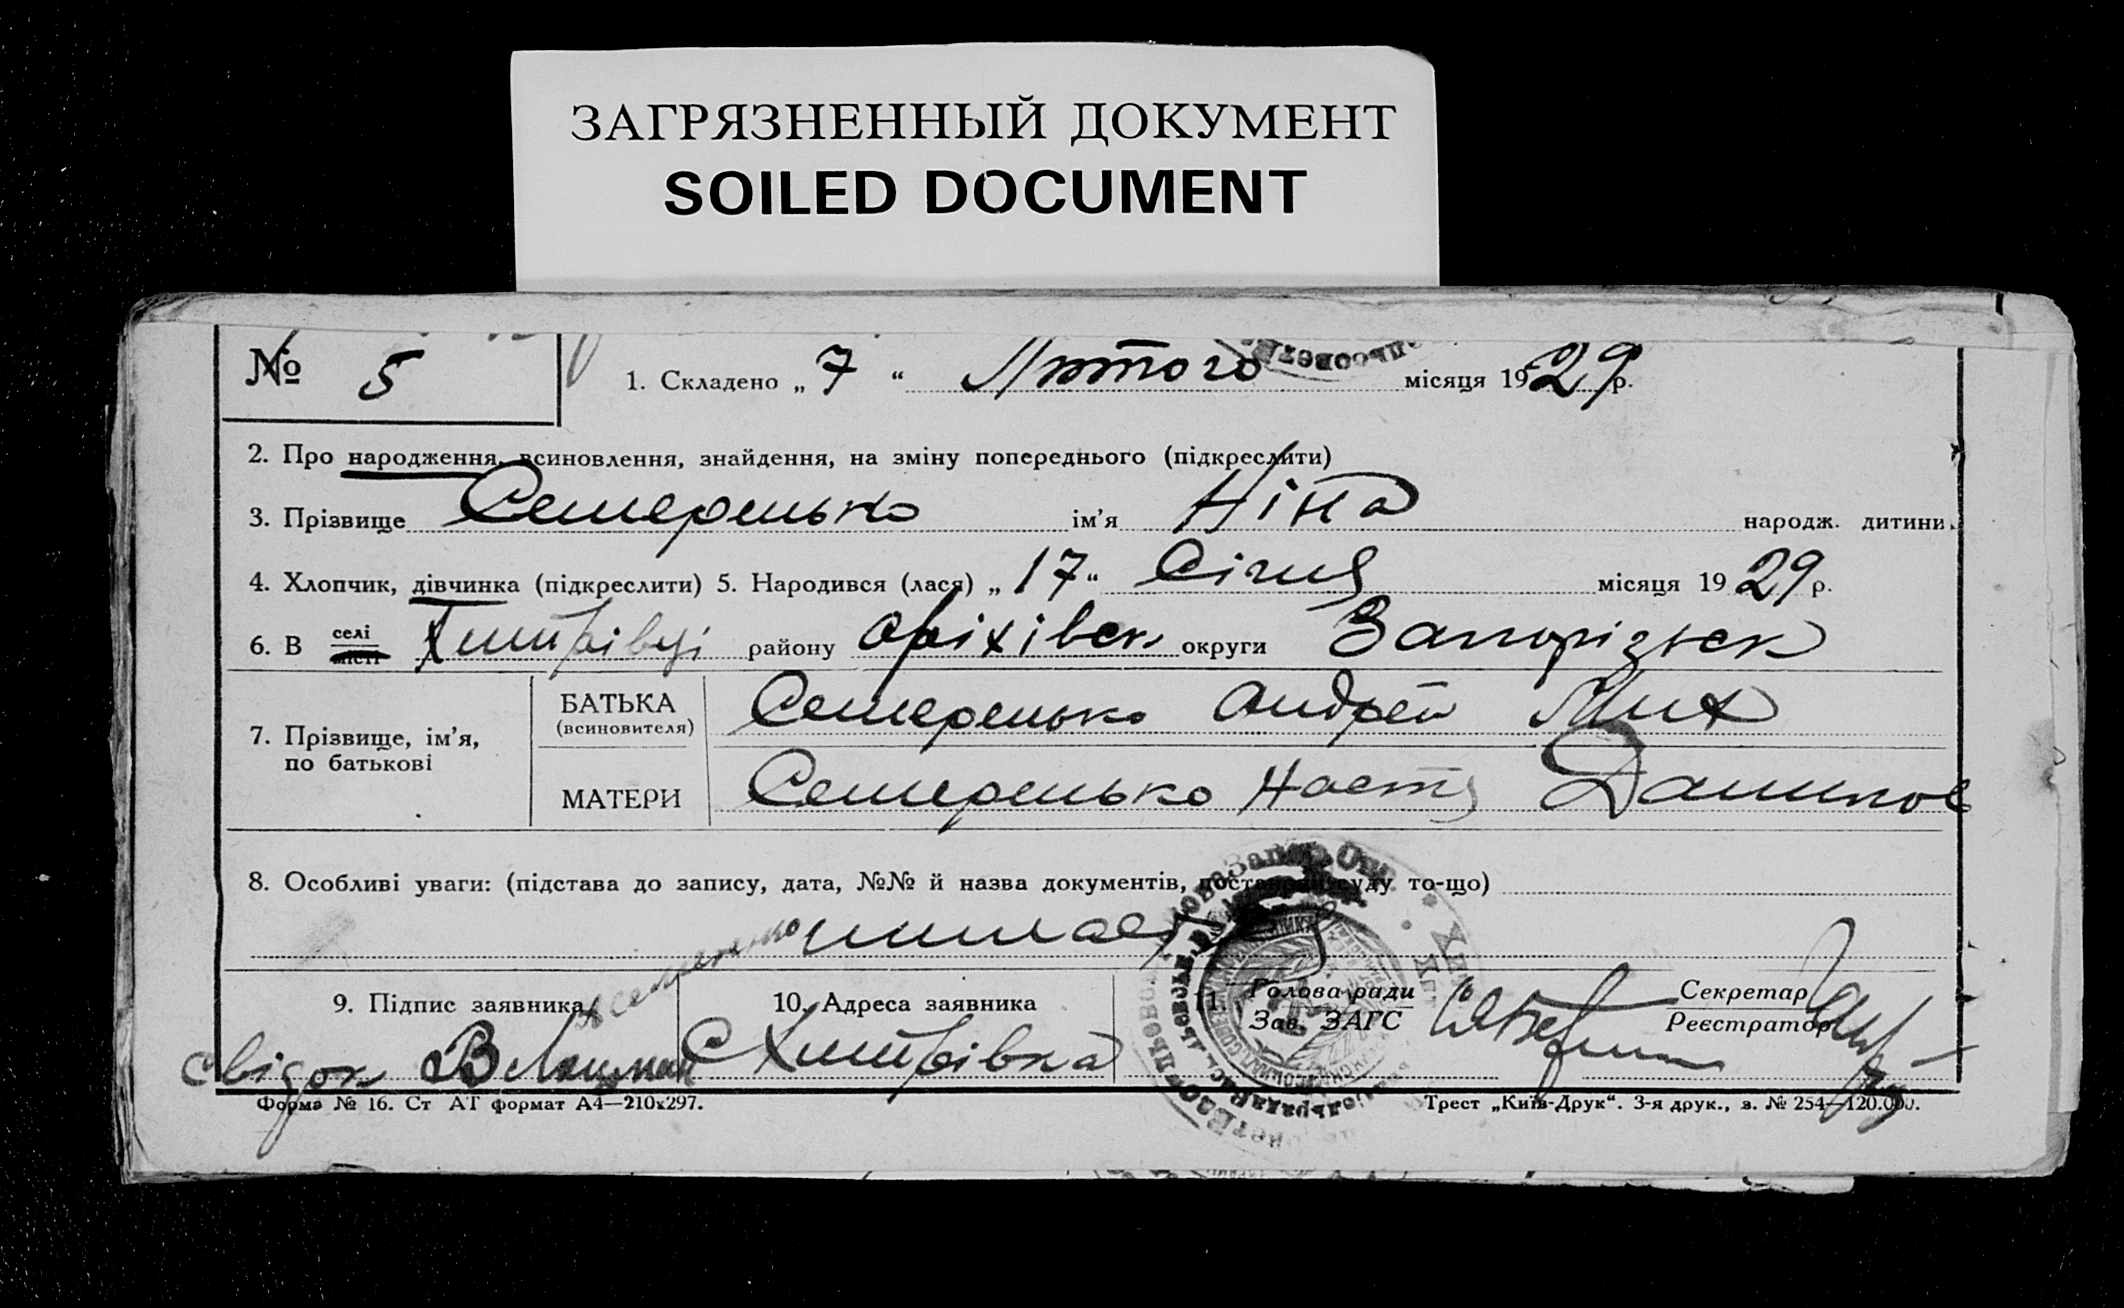 ЗАГРЯЗНЕННЫЙ ДОКУМЕНТ
SOILED DOCUMENT
№ 5
1. Складено „ 7 “ Лютого місяця 1929 р.
2. Про народження, всиновлення, знайдення, на зміну попереднього (підкреслити)
3. Прізвище Семеренько ім'я Ніна народж. дитини.
4. Хлопчик, дівчинка (підкреслити) 5. Народився (лася) „ 17 “ Січня місяця 1929 р.
6. В селі місті Хитрівці району Оріхівськ округи Запорізськ
7. Прізвище, ім'я, по батькові
БАТЬКА (всиновителя) Семеренько Андрей Мих
МАТЕРИ Семеренько Настя Данилов
8. Особливі уваги: (підстава до запису, дата, №№ й назва документів, постанови суду то-що)
9. Підпис заявника
свідок
10. Адреса заявника
С Хитрівка
11. Голова ради
Зав. ЗАГС
Секретар
Реєстратор
Форма № 16. Ст АТ формат А4—210х297.
Трест „Київ-Друк“. 3-я друк., з. № 254—120.000.